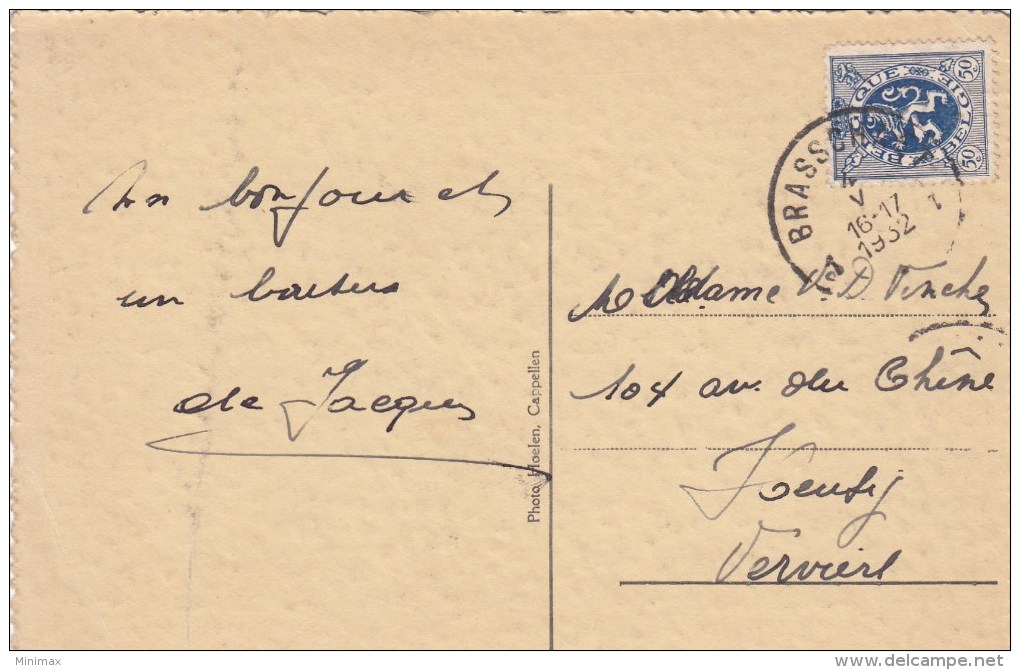 Un bonjour et
un baiser
de Jacques
Photo Hoelen, Cappellen
BELGIQUE BELGIE
50c
50c
BRASSCH
V
16-17
1932
1
Madame V.D.
104 av. du Chêne
Heusy
Verviers
Minimax
www.delcampe.net